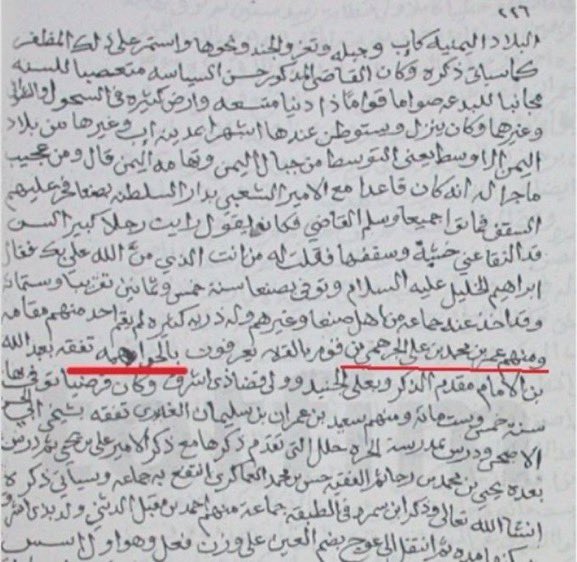 ٢٢٦
البلاد اليمنية كاب وجبله وتعز والجند ونحوها واستمر على ذلك المظفر
كما سياتي ذكره وكان القاضي المذكور حسن السياسه متعصبا للسنه
مجانبا للبدعه صواما قواما ذا دنيا متسعه وارض كثيره في السحول
وغيرها وكان ينزل ويستوطن عندها اشتهرا بمدينه اب وغيرها من بلاد
اليمن الاوسط يعني التوسط من جبال اليمن وتهامه اليمن قال ومن عجيب
ماجرا له انه كان قاعدا مع الامير الشعبي بدار السلطنه بصنعا فخر عليهم
السقف فماتوا جميعا وسلم القاضي فكان يقول رايت رجلا كبير السن
قد التقا عني خشبة وسقفها فقلت له من انت الذي من الله علي بك فقال
ابراهيم الخليل عليه السلام وتوفي بصنعا سنة خمس وثمانين تقريبا وستمائة
وقد اخذ عنه جماعه من اهل صنعا وغيرهم وله ذريه كثيره لم يقم احد منهم مقامه
ومنهم عمر بن محمد بن علي الجرهمي من قوم يعرفون تفقه بعبد الله
بن الامام مقدم الذكر وبعلي الجنيد وولي قضا ذي اشرق وكان فرضيا توفي بها
سنة خمس وستمائة ومنهم سعيد بن عمران بن سليمان تفقه بشيخي ابي الحسن
الاصبحي ودرس بمدرسة الحره حلل التي تقدم ذكرها مع ذكر الامير علي بن يحيى ثم درس
بعده يحيى بن محمد بن الفقيه حسن بن محمد العماكري انتفع به جماعه وسياتي ذكره
انشا الله تعالى وذكر ابن سمره في الطبقه جماعه منهم احمد بن مقبل الدثني ولد بذي اشرق
مده ثم انتقل الى عوج بضم العين على وزن فعل وهو اول من اسس